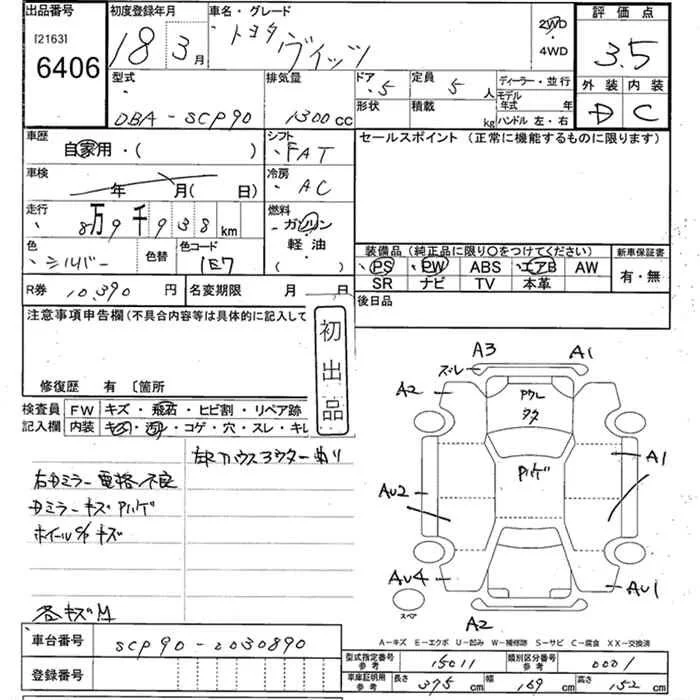 出品番号 初度登録年月 車名・グレード 2WD 評価点
[2163] 18 3月 トヨタ ヴィッツ ・ 3.5
6406 4WD
外装 内装
型式 排気量 ドア 定員 ディーラー・並行 D C
DBA-SCP90 1300cc 5 5人 モデル年式 年
形状 積載 kg ハンドル 左・右
車歴 シフト セールスポイント (正常に機能するものに限ります)
自家用・( ) FAT
車検 冷房
年 月( 日) AC
走行 燃料
8万9千938km ガソリン
色 色替 色コード 軽油 装備品(純正品に限り○をつけてください) 新車保証書
シルバー 1E7 ( ) PS PW ABS エアB AW 有・無
R券 10,390円 名変期限 月 日 SR ナビ TV 本革
後日品
注意事項申告欄(不具合内容等は具体的に記入して
初出品
修復歴 有 〔箇所
検査員 FW キズ・飛石・ヒビ割・リペア跡
記入欄 内装 キズ・汚レ・コゲ・穴・スレ・キレ
A3 A1
ズレ
A2
A1
AU2
AU4 AU1
スペア A2
右ドミラー電格不良
ドミラーキズ
ホイールキズ
各キズ
A-キズ E-エクボ U-凹み W-補修跡 S-サビ C-腐食 XX-交換済
車台番号 SCP90-2030890
型式指定番号 参考 15011 類別区分番号 参考 0001
登録番号 車庫証明用 参考 長さ 375cm 幅 169cm 高さ 152cm